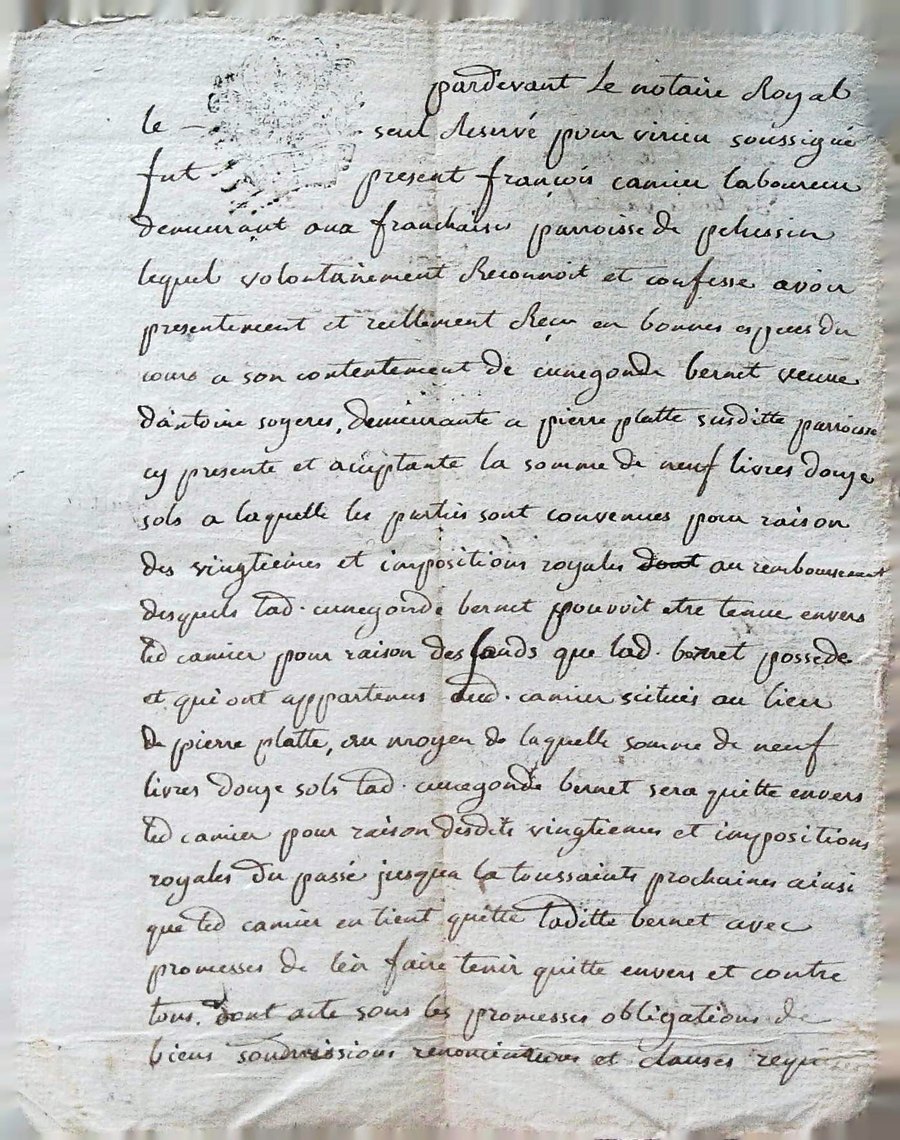 pardevant Le notaire Royal
le - seul Reservé pour virieu soussigné
fut present françois camier laboureur
demeurant aux franchises parroisse de pelussin
lequel volontairement Reconnoit et confesse avoir
presentement et reellement Reçu en bonnes especes du
cours a son contentement de cunegonde bernet veuve
d'antoine sogeres, demeurante a pierre platte susditte parroisse
cy presente et aceptante la somme de neuf livres douze
sols a laquelle les parties sont convenues pour raison
des vingtiemes et impositions royales dont au remboursement
desquels lad. cunegonde bernet pouvoit etre tenue envers
led camier pour raison des fonds que lad. bernet possede
et qui ont appartenus aud. camier scitués au lieu
de pierre platte, au moyen de laquelle somme de neuf
livres douze sols lad. cunegonde bernet sera quitte envers
led camier pour raison desdits vingtiemes et impositions
royales du passé jusqua la toussaints prochaines ainsi
que led camier en tient quitte laditte bernet avec
promesses de l'en faire tenir quitte envers et contre
tous. dont acte sous les promesses obligations de
biens soumissions renonciations et clauses